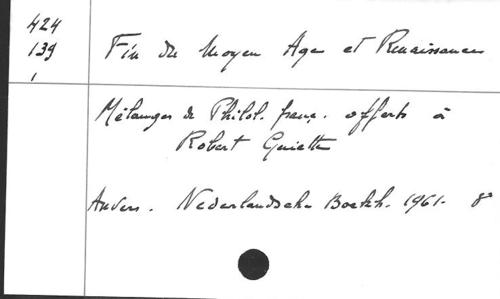 424
139
1
Fin du Moyen Age et Renaissance
Mélanges de Philol. franç. offerts à
Robert Guiette
Anvers. Nederlandsche Boekh. 1961. 8°